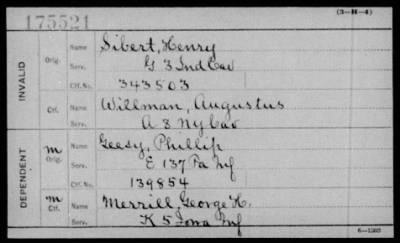 175521
(3-H-4)
INVALID
Orig. Name Sibert, Henry
Serv. G 3 Ind Cav
Ctf. No. 343503
Ctf. Name Willman, Augustus
Serv. A 8 Ny Cav
DEPENDENT
m Orig. Name Geesy, Phillip
Serv. E 137 Pa Inf
Ctf. No. 139854
m Ctf. Name Merrill, George H.
Serv. K 5 Iowa Inf